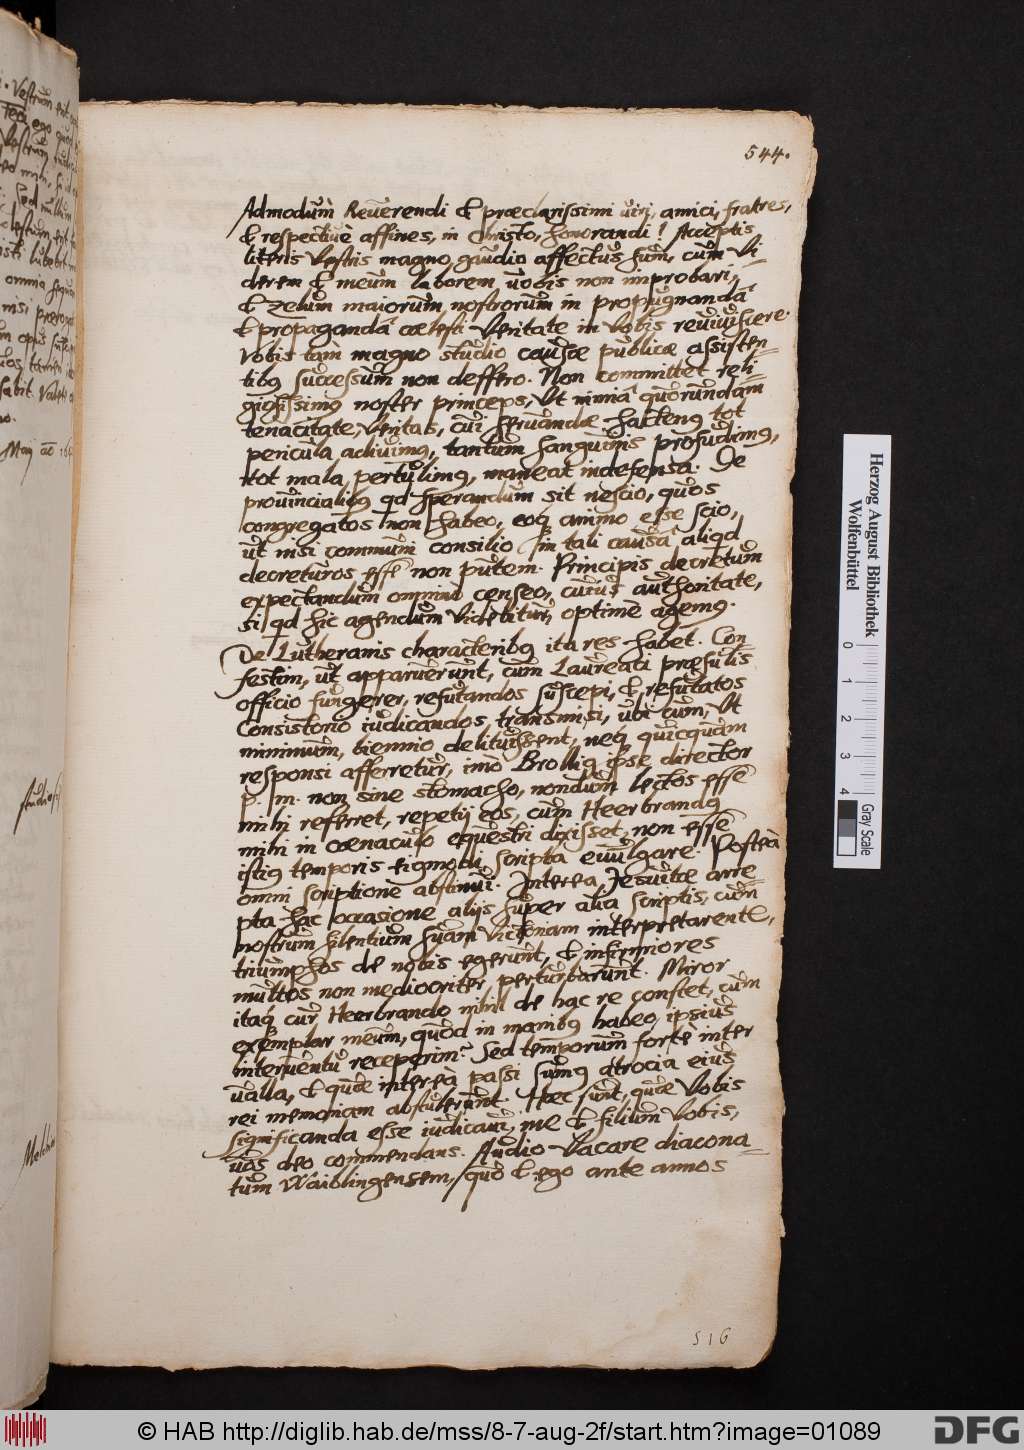 544.
Admodum Reverendi & præclarissimi viri, amici, fratres,
& respectivè affines, in Christo, honorandi! Acceptis
literis Vestris magno gaudio affectus sum, cum Vi-
derem & meum laborem vobis non improbari,
& zelum maiorum nostrorum in propugnandâ
& propagandâ cœlesti Veritate in Vobis reviviscere.
Vobis tam magno studio causæ publicæ assisten-
tibus successum non despero. Non committet reli-
giosissimus noster princeps, Ut nimiâ quorundam
tenacitate, Veritas, cui servandæ hactenus tot
pericula adivimus, tantum sanguinis profudimus,
tot mala pertulimus, maneat indefensa. De
provincialibus qd sperandum sit nescio, quos
congregatos non habeo, eoq animo esse scio,
ut nisi communi consilio in tali causâ aliqd
decreturos esse non putem. Principis decretum
expectandum omnino censeo, cuius authoritate,
si qd hic agendum videbitur, optimè agemus.
De Lutheranis characteribus ita res habet. Con
festim, ut apparuerunt, cum Laureati præsulis
officio fungerer, refutandos suscepi, & refutatos
Consistorio iudicandos transmisi, ubi cum, Ut
minimum, biennio delituissent, neq quicquam
responsi afferretur, imò Brollius ipse director
p. m. non sine stomacho, nondum lectos esse
mihi referret, repetij eos, cum Heerbrandus
mihi in cœnaculo equestri dixisset, non esse
istius temporis eiusmodi scripta evulgare. Posteà
omni scriptione abstinui. Interea Jesuitæ arre
pta hac occasione alijs super alia scriptis, cum
nostrum silentium suam Victoriam interpretarent,
triumphos de nobis egerunt, & infirmiores
multos non mediocriter perturbarunt. Miror
itaq cur Heerbrando nihil de hac re constet, cum
exemplar meum, quod in manibus habeo, ipsius
interventu receperim. Sed temporum fortè inter
valla, & quæ intereà passi sumus atrocia eius
rei memoriam abstulerunt. Hæc sunt, quæ Vobis
significanda esse iudicavi, me & filium Vobis,
vos deo commendans. Audio Vacare diacona-
tum Waiblingensem, quo & ego ante annos
516
Herzog August Bibliothek
Wolfenbüttel
0 1 2 3 4
Gray Scale
© HAB http://diglib.hab.de/mss/8-7-aug-2f/start.htm?image=01089
DFG